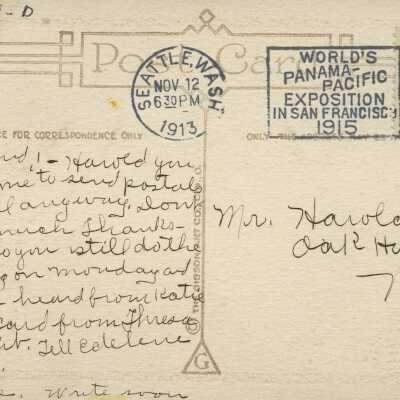 - D
Post Card
SEATTLE, WASH.
NOV 12
6 30 PM
1913
WORLD'S
PANAMA-
PACIFIC
EXPOSITION
IN SAN FRANCISCO
1915
CE FOR CORRESPONDENCE ONLY
ONLY THE ADDRESS
! - Harold you
me to send postals
anyway. Don't
much Thanks-
you still do the
on Monday and
heard from Katie
card from Thresa
Tell
Write soon
Mr. Harold
Oak
THE GIBSON ART CO., CIN., O.
G